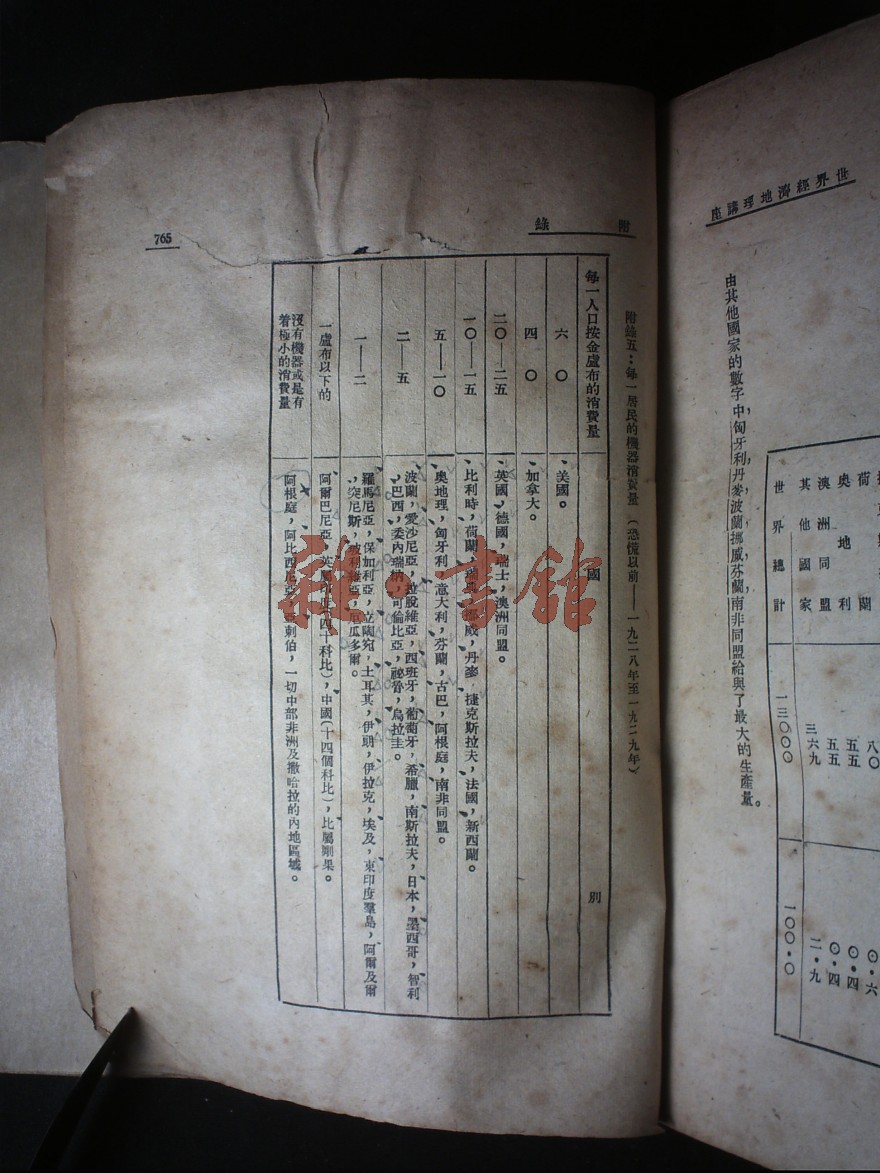 世界經濟地理講座
由其他國家的數字中，匈牙利，丹麥，波蘭，挪威，芬蘭，南非同盟給與了最大的生產量。
荷蘭 八〇 〇・六
奧地利 五五 〇・四
澳洲同盟 五五 〇・四
其他國家 三六九 二・九
世界總計 一三〇〇〇 一〇〇・〇
附錄
765
附錄五：每一居民的機器消費量（恐慌以前——一九二八年至一九二九年）
每一人口按金盧布的消費量 國別
六〇 美國。
四〇 加拿大。
二〇——二五 英國，德國，瑞士，澳洲同盟。
一〇——一五 比利時，荷蘭，瑞典，挪威，丹麥，捷克斯拉夫，法國，新西蘭。
五——一〇 奧地理，匈牙利，意大利，芬蘭，古巴，阿根庭，南非同盟。
二——五 波蘭，愛沙尼亞，拉脫維亞，西班牙，葡萄牙，希臘，南斯拉夫，日本，墨西哥，智利
，巴西，委內瑞納，可倫比亞，祕魯，烏拉圭。
一——二 羅馬尼亞，保加利亞，立陶宛，土耳其，伊朗，伊拉克，埃及，東印度羣島，阿爾及爾
，突尼斯，玻利維亞，厄瓜多爾。
一盧布以下的 阿爾巴尼亞，英屬印度（四十科比），中國（十四個科比），比屬剛果。
沒有機器或是有
着極小的消費量 阿根庭，阿比西尼亞，亞剌伯，一切中部非洲及撒哈拉的內地區域。
雜・書館